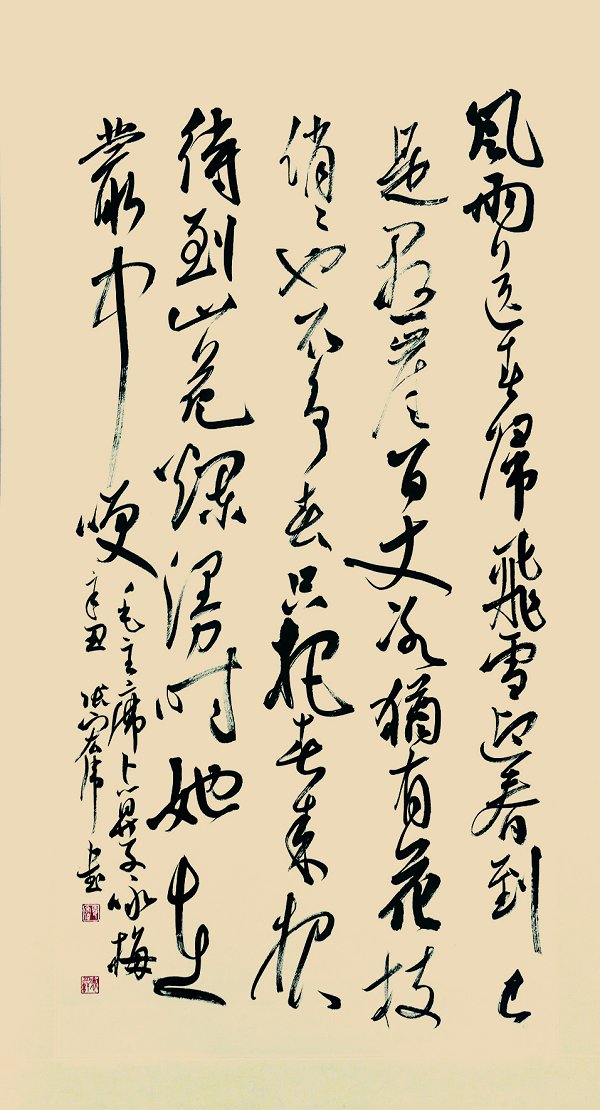 風雨送春歸飛雪迎春到已
是懸崖百丈冰猶有花枝
俏〻也不争春只把春来报
待到山花爛漫时她在
叢中咲
毛主席卜算子咏梅
辛丑